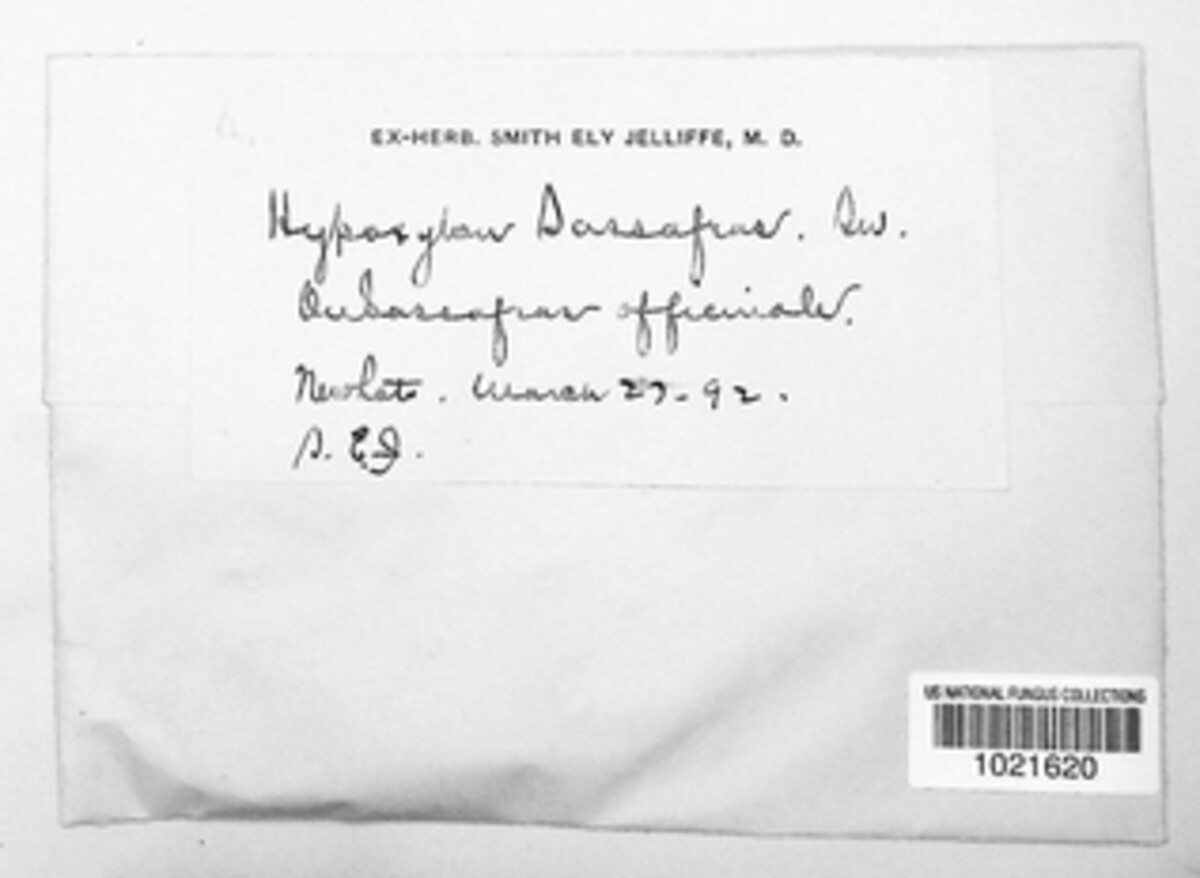 EX-HERB. SMITH ELY JELLIFFE, M. D.
Hypoxylon Sassafras. Sw.
On Sassafras officinale.
Newlots. March 27-92.
S. E. J.
US NATIONAL FUNGUS COLLECTIONS
1021620